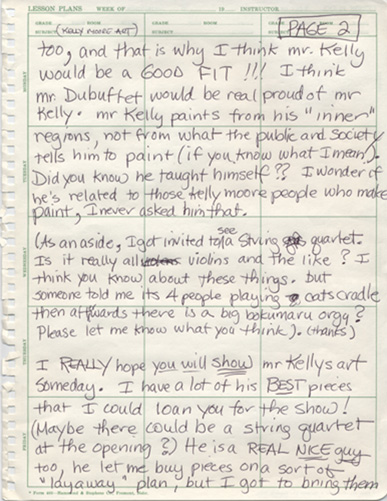 LESSON PLANS WEEK OF 19 INSTRUCTOR
GRADE ROOM GRADE ROOM GRADE ROOM
SUBJECT (KELLY MOORE ART) SUBJECT SUBJECT PAGE 2
too, and that is why I think mr. Kelly
would be a GOOD FIT !!! I think
mr. Dubuffet would be real proud of mr
Kelly. mr Kelly paints from his "inner"
regions, not from what the public and society
tells him to paint (if you know what I mean).
Did you know he taught himself?? I wonder if
he's related to those Kelly moore people who make
paint, I never asked him that.
(As an aside, I got invited to see a string quartet.
Is it really all violins and the like? I
think you know about these things. but
someone told me its 4 people playing cats cradle
then aftwards there is a big bokumaru orgy?
Please let me know what you think). (thanks)
I REALLY hope you will show mr Kellys art
Someday. I have a lot of his BEST pieces
that I could loan you for the show!
(Maybe there could be a string quartet
at the opening?) He is a REAL NICE guy
too, he let me buy pieces on a sort of
"layaway" plan, but I got to bring them
MONDAY
TUESDAY
WEDNESDAY
THURSDAY
FRIDAY